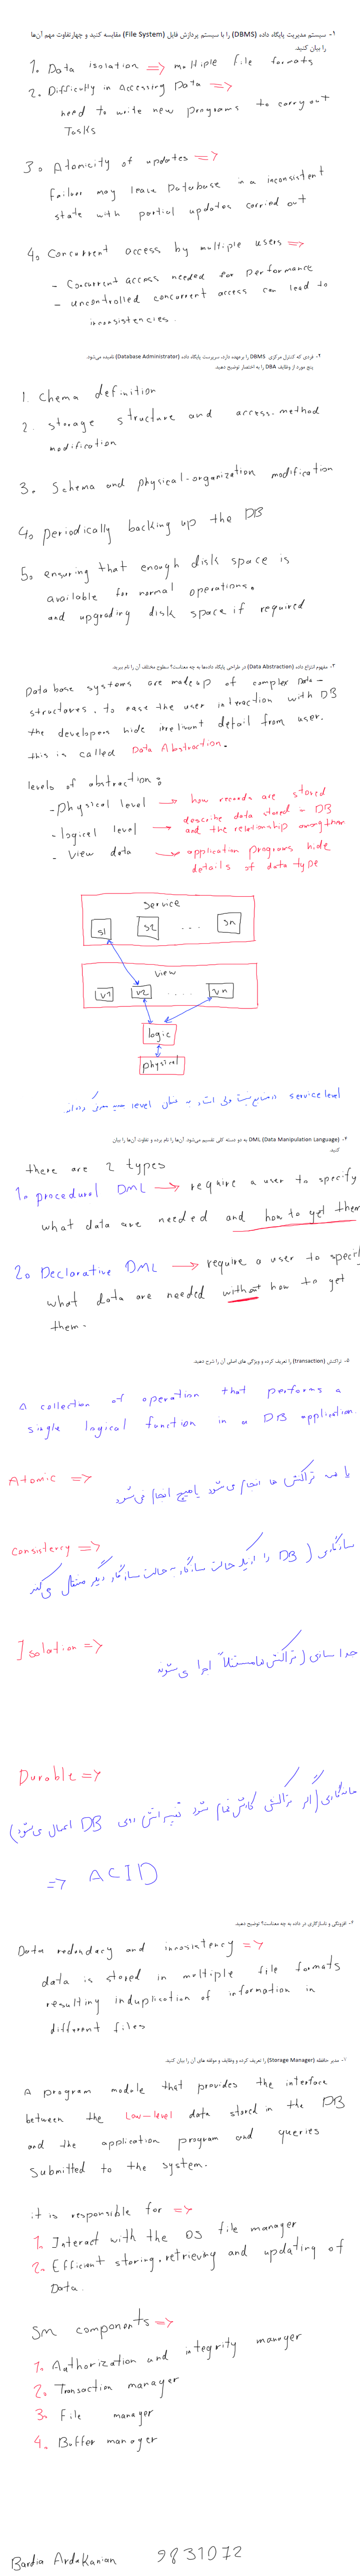 ۱- سیستم مدیریت پایگاه داده (DBMS) را با سیستم پردازش فایل (File System) مقایسه کنید و چهارتفاوت مهم آن‌ها
را بیان کنید.
1. Data isolation => multiple file formats
2. Difficulty in Accessing Data =>
need to write new programs to carry out
Tasks
3. Atomicity of updates =>
failures may leave Database in a inconsistent
state with partial updates carried out
4. Concurrent access by multiple users =>
- Concurrent access needed for performance
- uncontrolled concurrent access can lead to
inconsistencies.
۲- فردی که کنترل مرکزی DBMS را برعهده دارد، سرپرست پایگاه داده (Database Administrator) نامیده می‌شود.
پنج مورد از وظایف DBA را به اختصار توضیح دهید.
1. Chema definition
2. storage structure and access-method
modification
3. Schema and physical-organization modification
4. periodically backing up the DB
5. ensuring that enough disk space is
available for normal operations.
and upgrading disk space if required
۳- مفهوم انتزاع داده (Data Abstraction) در طراحی پایگاه داده‌ها به چه معناست؟ سطوح مختلف آن را نام ببرید.
Data base systems are made up of complex Data-
structures. to ease the user interaction with DB
the developers hide irrelivant detail from user.
this is called Data Abstraction.
levels of abstraction:
- physical level → how records are stored
- logical level → describe data stored in DB
and the relationship among them
- View data → application programs hide
details of data type
Service
S1 S2 ... Sn
View
V1 V2 .... Vn
logic
physical
service level در منابع نیست ولی استاد به عنوان level جدید معرفی کرده‌اند
۴- DML (Data Manipulation Language) به دو دسته کلی تقسیم می‌شود. آن‌ها را نام برده و تفاوت آن‌ها را بیان
کنید.
there are 2 types
1. procedural DML → require a user to specify
what data are needed and how to get them
2. Declarative DML → require a user to specify
what data are needed without how to get
them.
۵- تراکنش (transaction) را تعریف کرده و ویژگی های اصلی آن را شرح دهید.
A collection of operation that performs a
single logical function in a DB application.
Atomic => یا همه تراکنش ها انجام می‌شود یا هیچ انجام نمی‌شود
Consistency => سازگاری ( DB را از یک حالت سازگار به حالت سازگار دیگر منتقل می‌کند
Isolation => جدا سازی (تراکنش ها مستقلاً اجرا می‌شوند
Durable => ماندگاری (اگر تراکنش کارش تمام شود تغییراتش روی DB اعمال می‌شود)
=> ACID
۶- افزونگی و ناسازگاری در داده به چه معناست؟ توضیح دهید.
Data redundacy and inconsistency =>
data is stored in multiple file formats
resulting induplication of information in
different files
۱- مدیر حافظه (Storage Manager) را تعریف کرده و وظایف و مولفه های آن را بیان کنید.
A program module that provides the interface
between the Low-level data stored in the DB
and the application program and queries
Submitted to the system.
it is responsible for =>
1. Interact with the OS file manager
2. Efficient storing, retrieving and updating of
Data.
SM components =>
1. Authorization and integrity manager
2. Transaction manager
3. File manager
4. Buffer manager
Bardia Ardakanian 9831072